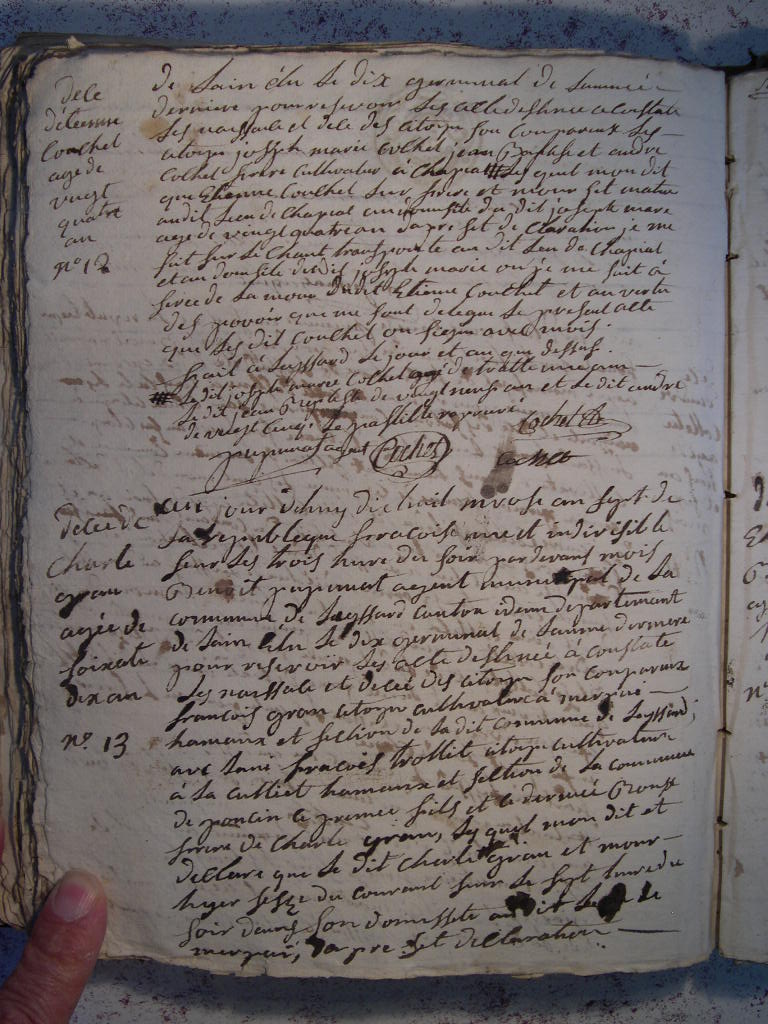 dele
Etienne
Couchet
age de
vingt
quatre
an
n° 12
de lain élu le dix germinal de lannée
derniere pour reservoir les acte destinee a constate
les naissale et dele des citoyin son comparaux les
citoyin joseph marie Cochet jean Baptiste et andre
Cochet frere cultivateur, à Chapiat les quel mon dit
que Etienne Couchet leur frere et mour set matin
audit lieu de Chapiat au domisile du dit joseph mare
age de vingt quatre an dapre set de Claration je me
suit sur le Chant transporte au dit lieu de Chapiat
et au domsile dudit joseph marie ou je me suit à
suree de la mour dudit Etienne Couchet et au vertu
des povoir que me sont delegue le present alte
que les dit Couchet on signe avec mois.
fait à Leyssard le jour et an que dessus.
le dit joseph marie Cochet age de trante une an
le dit jean Baptiste de vingt neuf an et le dit andre
de vingt cinq.
pupunat agent Cochet Cochet
Cochet
delee de
Charle
gran
agée de
soixate
dix an
n° 13
au jour dhuy dix huit nivose an sept de
la republique francoise une et indivisible
sur les trois hure du soir pardevans mois
Benoit pupunat agent municipal de la
commune de Leyssard canton idem departement
de lain élu le dix germinal de lanne derniere
pour reservoir les acte destinee à constate
les naissale et delee des citoyin son comparaux
francois gran citoyin cultivateur à
hamaux et section de la dit commune de Leyssard,
avec lani francois trollit citoyin cultivateur
à la cultiet hamaux et section de la commune
de poncin le premie fils et le dernié
frere de Charle gran, les quel mon dit et
declare que le dit Charle gran et mour
hyer du courant sur le sept hure du
soir dans son domissile audit lieu de
dapre set declaration